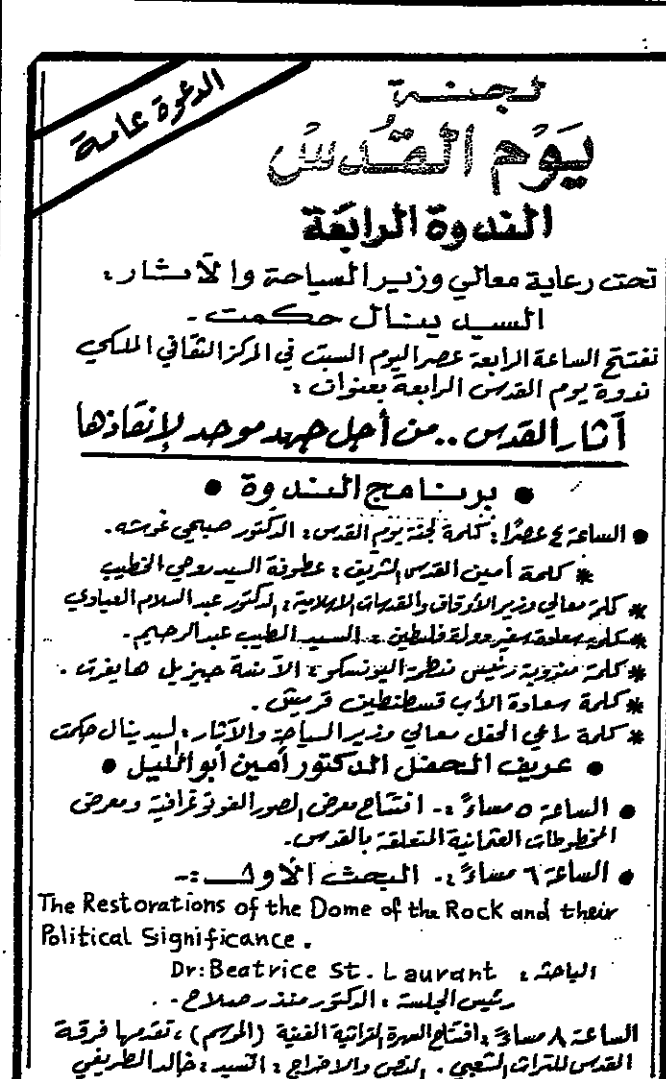 الدعوة عامة
لجنة
يَوْم القُدسْ
الندوة الرابعة
تحت رعاية معالي وزير السياحة والآثار :
السيد ينال حكمت -
نفتتح الساعة الرابعة عصر اليوم السبت في المركز الثقافي الملكي
ندوة يوم القدس الرابعة بعنوان :
آثار القدس .. من أجل جهد موحد لإنقاذها
• برنامج الندوة •
• الساعة ٤ عصرًا : كلمة لجنة يوم القدس : الدكتور صبحي غوشه .
* كلمة أمين القدس الشريف : عطوفة السيد روحي الخطيب
* كلمة معالي وزير الأوقاف والمقدسات الاسلامية : الدكتور عبد السلام العبادي
* كلمة سعادة سفير دولة فلسطين : السيد الطيب عبد الرحيم -
* كلمة مندوبة رئيس منظمة اليونسكو : الآنسة جيزيل هايفرت .
* كلمة سعادة الأب قسطنطين قرمش .
* كلمة راعي الحفل معالي وزير السياحة والآثار : السيد ينال حكمت
• عريف الحفل الدكتور أمين أبو الليل •
• الساعة ٥ مساءً :- افتتاح معرض الصور الفوتوغرافية ومعرض
المخطوطات العثمانية المتعلقة بالقدس .
• الساعة ٦ مساءً :- البحث الأول :-
The Restorations of the Dome of the Rock and their
Political Significance .
الباحثة : Dr: Beatrice St. Laurant
رئيس الجلسة : الدكتور منذر صلاح - .
الساعة ٨ مساءً : افتتاح السهرة التراثية الفنية (الموسم) ، تقدمها فرقة
القدس للتراث الشعبي . النص والاخراج : السيد : خالد الطريفي